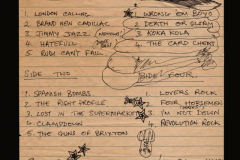 1. LONDON CALLING
2. BRAND NEW CADILLAC
3. JIMMY JAZZ
4. HATEFULL
5. RUDI CAN'T FAIL
1. WRONG 'EM BOYO
2. DEATH OR GLORY
3. KOKA KOLA
4. THE CARD CHEAT
SIDE TWO
1. SPANISH BOMBS
2. THE RIGHT PROFILE
3. LOST IN THE SUPERMARKET
4. CLAMPDOWN
5. THE GUNS OF BRIXTON
SIDE FOUR
1. LOVERS ROCK
2. FOUR HORSEMEN
3. I'M NOT DOWN
4. REVOLUTION ROCK